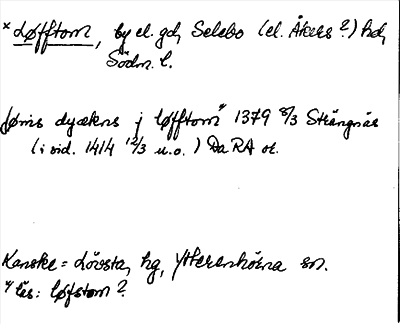 * Løfftom, by el. gd, Selebo (el. Åkers?) hd,
Södm. l.
Jønis dyækns j løfftom" 1379 8/3 Strängnäs
(i vid. 1414 12/3 u.o.) Da RA or.
Kanske = Lövsta, hg, Ytterenhörna sn.
" läs: løfstom?